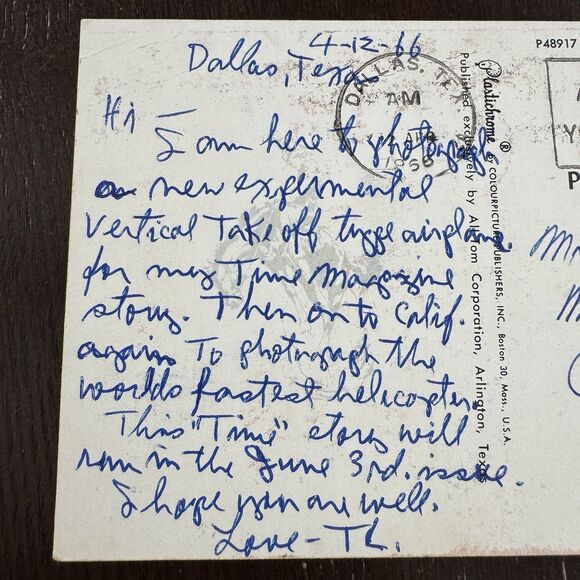 4-12-66
Dallas, Texas
Hi —
I am here to photograph
a new expermental
vertical take off type airplane
for my Time Magazine
story. Then on to Calif.
again to photograph the
worlds fastest helicopter.
This "Time" story will
run in the June 3rd. issue.
I hope you are well.
Love - TL.
DALLAS, TEX
AM
APR
1966
P48917
Plastichrome ® BY COLOURPICTURE PUBLISHERS, INC., Boston 30, Mass., U.S.A.
Published exclusively by All-Tom Corporation, Arlington, Texas